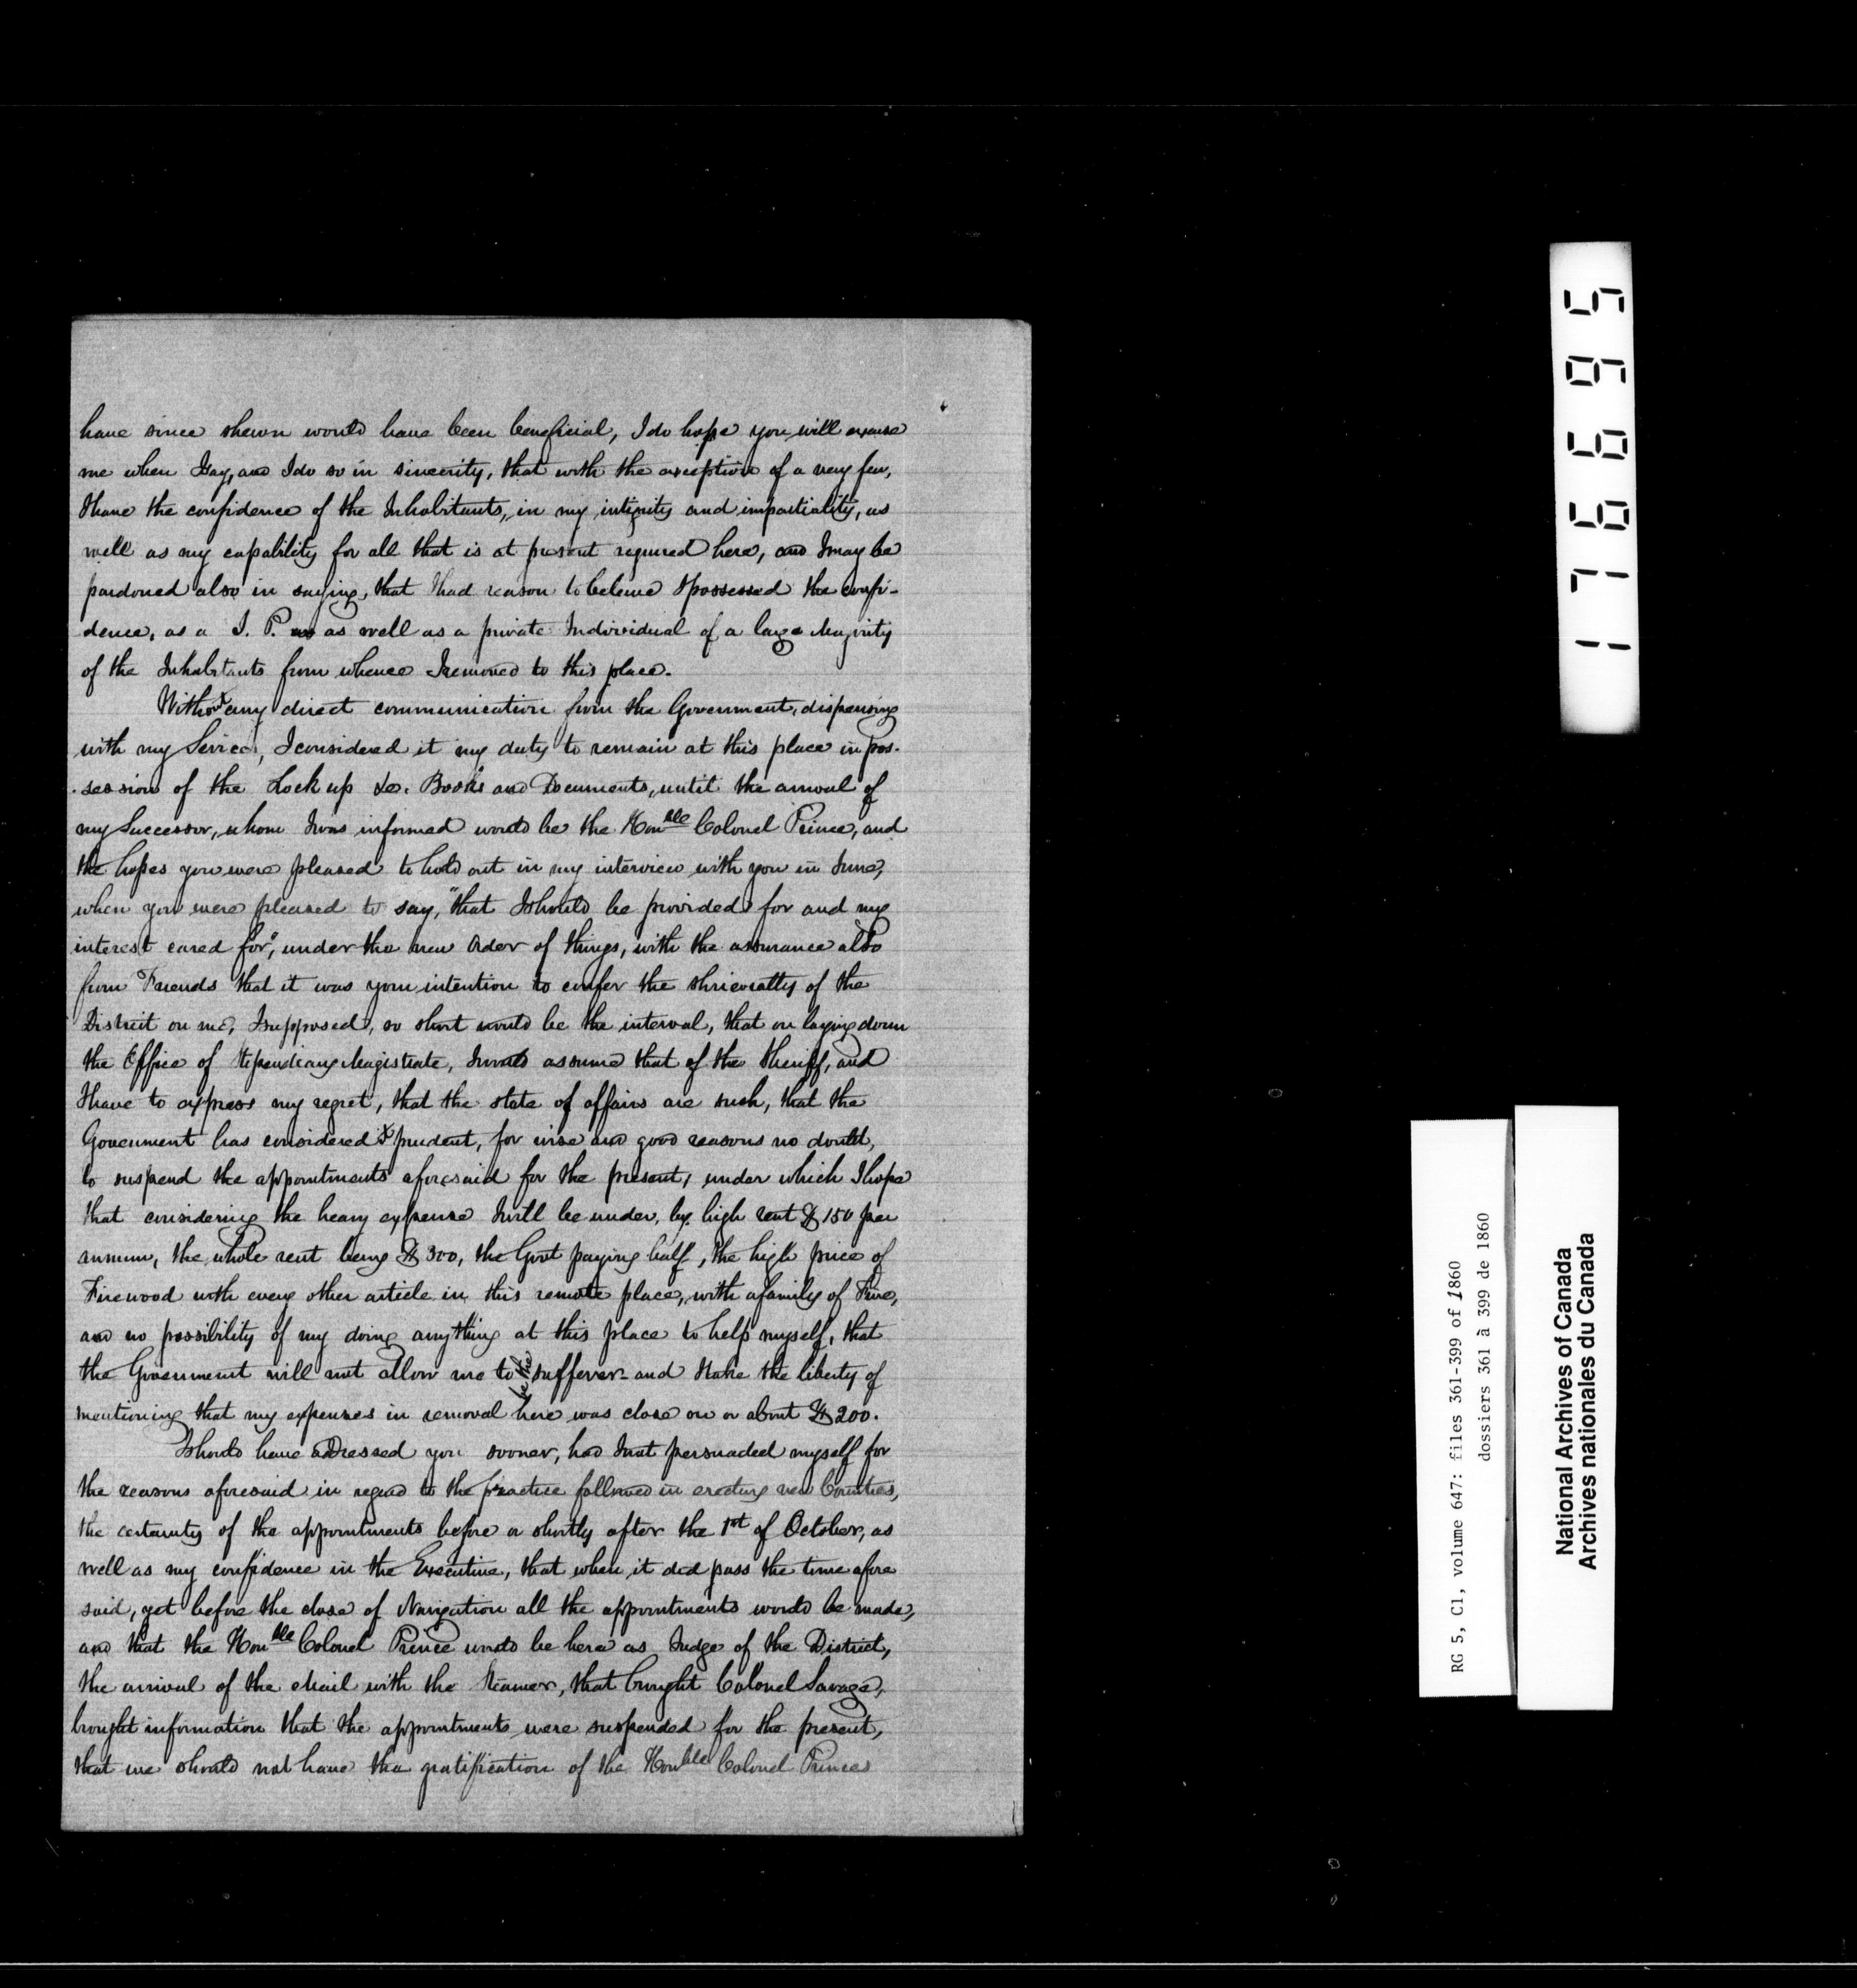 have since shewn would have been beneficial, I do hope you will excuse
me when I say, and I do so in sincerity, that with the exception of a very few,
I have the confidence of the Inhabitants, in my intigrity and impartiality, as
well as my capability for all that is at present required here, and I may be
pardoned also in saying, that I had reason to beleive I possessed the confi-
dence, as a J. P. as well as a private Individual of a large Majority
of the Inhabitants from whence I removed to this place.
Without any direct communication from the Government, dispensing
with my Services, I considered it my duty to remain at this place in pos-
session of the Lock up &c. Books and Documents, until the arrival of
my Successor, whom I was informed would be the Honble Colonel Prince, and
the hopes you were pleased to hold out in my interview with you in June,
when you were pleased to say, "that I should be provided for and my
interest cared for", under the new order of things, with the assurance also
from Friends that it was your intention to confer the shrievalty of the
District on me, I supposed, so short would be the interval, that on laying down
the Office of Stipendiary Magistrate, I would assume that of the Sheriff, and
I have to express my regret, that the state of affairs are such, that the
Government has considered it prudent, for wise and good reasons no doubt,
to suspend the appointments aforesaid for the present, under which I hope
that considering the heavy expense I will be under, by high rent $150 per
annum, the whole rent being $300, the Govt paying half, the high price of
Firewood with every other article in this remote place, with a family of Five,
and no possibility of my doing anything at this place to help myself, that
the Government will not allow me to be the sufferer - and I take the liberty of
mentioning that my expenses in removal here was close on or about $200.
I should have adressed you sooner, had I not persuaded myself for
the reasons aforesaid in regard to the practice followed in erecting new Counties,
the certainty of the appointments before or shortly after the 1st of October, as
well as my confidence in the Executive, that when it did pass the time afore
said, yet before the close of Navigation all the appointments would be made,
and that the Honble Colonel Prince would be here as Judge of the District,
the arrival of the Mail with the Steamer, that brought Colonel Savage,
brought information that the appointments were suspended for the present,
that we should not have the gratification of the Honble Colonel Princes
176695
RG 5, C1, volume 647: files 361-399 of 1860
dossiers 361 à 399 de 1860
National Archives of Canada
Archives nationales du Canada